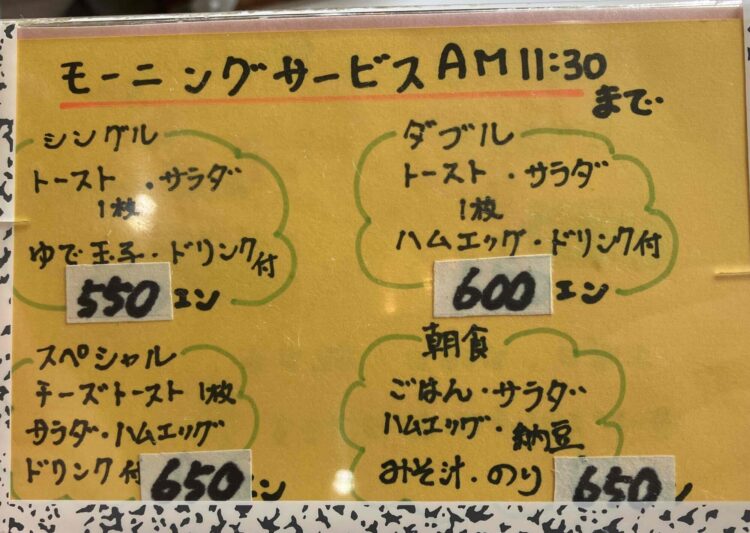 モーニングサービスAM11:30
まで
シングル
トースト・サラダ
1枚
ゆで玉子・ドリンク付
550エン
ダブル
トースト・サラダ
1枚
ハムエッグ・ドリンク付
600エン
スペシャル
チーズトースト1枚
サラダ・ハムエッグ
ドリンク付
650エン
朝食
ごはん・サラダ
ハムエッグ・納豆
みそ汁・のり
650ン